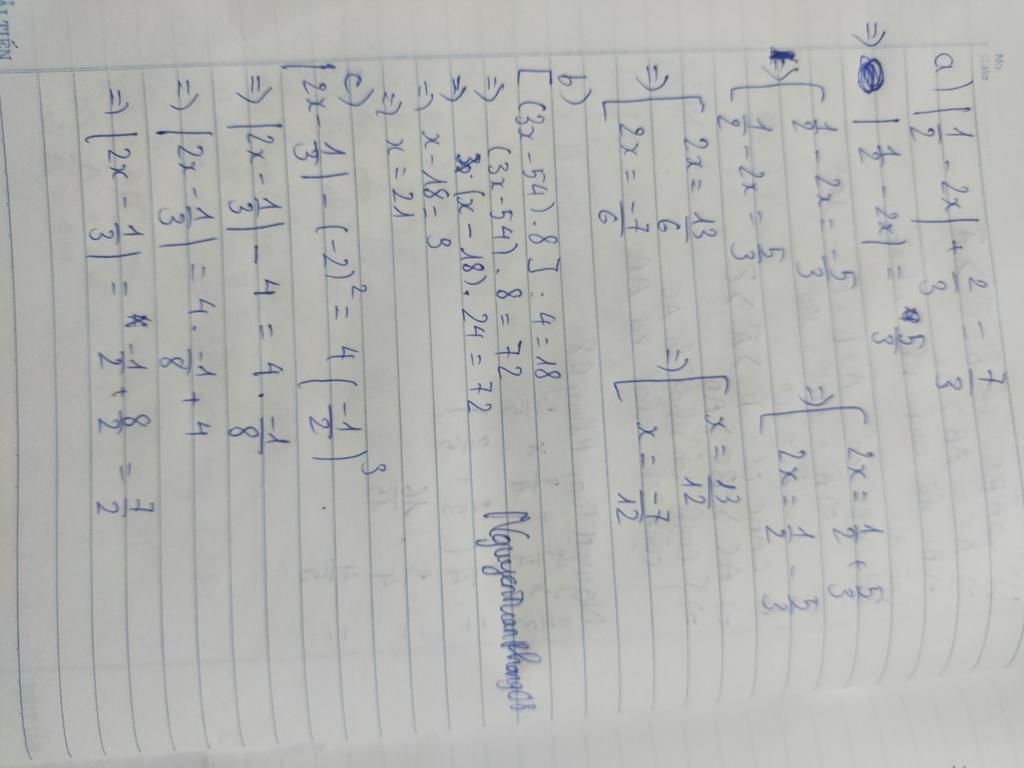 No.
Date
a) |1/2 - 2x| + 2/3 = 7/3
=) |1/2 - 2x| = 5/3
=) [ 1/2 - 2x = -5/3
1/2 - 2x = 5/3
=) [ 2x = 1/2 + 5/3
2x = 1/2 - 5/3
=) [ 2x = 13/6
2x = -7/6
=) [ x = 13/12
x = -7/12
b)
[(3x - 54) . 8] : 4 = 18
=) (3x - 54) . 8 = 72
=) (x - 18) . 24 = 72
=) x - 18 = 3
=) x = 21
c)
|2x - 1/3| - (-2)² = 4(-1/2)³
=) |2x - 1/3| - 4 = 4 . -1/8
=) |2x - 1/3| = 4 . -1/8 + 4
=) |2x - 1/3| = -1/2 + 8/2 = 7/2